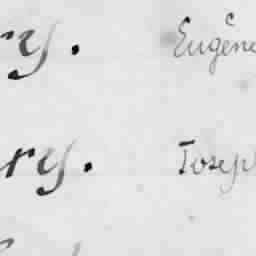 ry. Eugène
ry. Josep